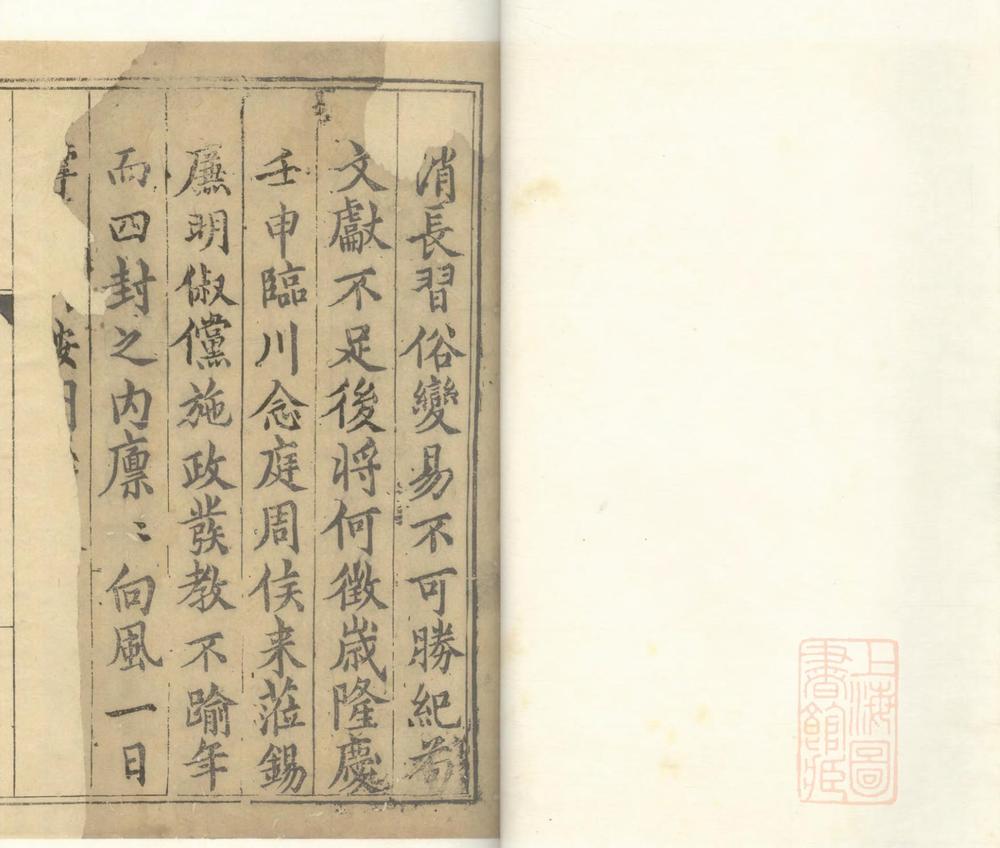 消長習俗變易不可勝紀若
文獻不足後將何徵歲隆慶
壬申臨川念庭周侯来蒞錫
廉明俶儻施政發教不踰年
而四封之内廪〻向風一日
按
上海圖
書館藏